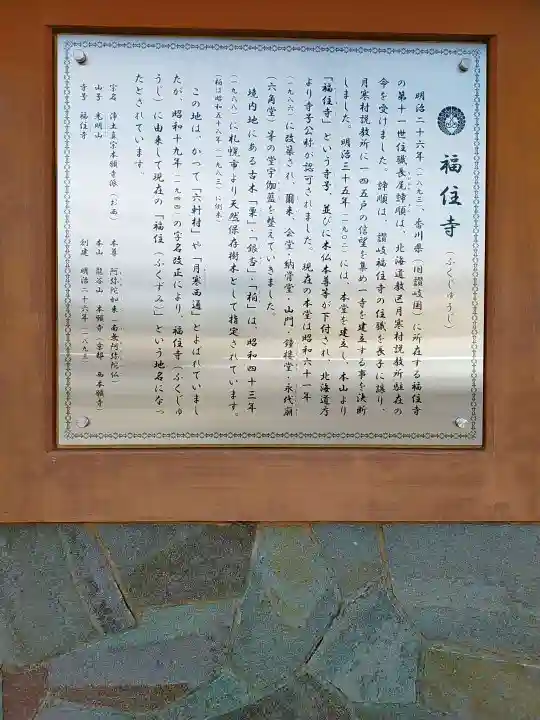 福住寺（ふくじゅうじ）
明治二十六年（一八九三）、香川県（旧讃岐国）に所在する福住寺
の第十一世住職長尾諦順は、北海道教区月寒村説教所駐在の
命を受けました。諦順は、讃岐福住寺の住職を長子に譲り、
月寒村説教所に一四五戸の信望を集め一寺を建立する事を決断
しました。明治三十五年（一九〇二）には、本堂を建立し、本山より
「福住寺」という寺号、並びに木仏本尊等が下付され、北海道庁
より寺号公称が認可されました。現在の本堂は昭和六十一年
（一九八六）に改築され、爾来、会堂・納骨堂・山門・鐘楼堂・永代廟
（六角堂）等の堂宇伽藍を整えていきました。
境内地にある古木「栗」・「銀杏」・「柏」は、昭和四十三年
（一九六八）に札幌市より天然保存樹木として指定されています。
（柏は昭和五十六年（一九八一）に倒木）
この地は、かつて「六軒村」や「月寒西通」とよばれていまし
たが、昭和十九年（一九四四）の字名改正により、福住寺（ふくじゅ
うじ）に由来して現在の「福住（ふくずみ）」という地名になっ
たとされています。
宗名 浄土真宗本願寺派（お西） 本尊 阿弥陀如来・南無阿弥陀仏
山号 光明山 本山 龍谷山 本願寺（京都 西本願寺）
寺号 福住寺 創建 明治二十六年（一八九三）